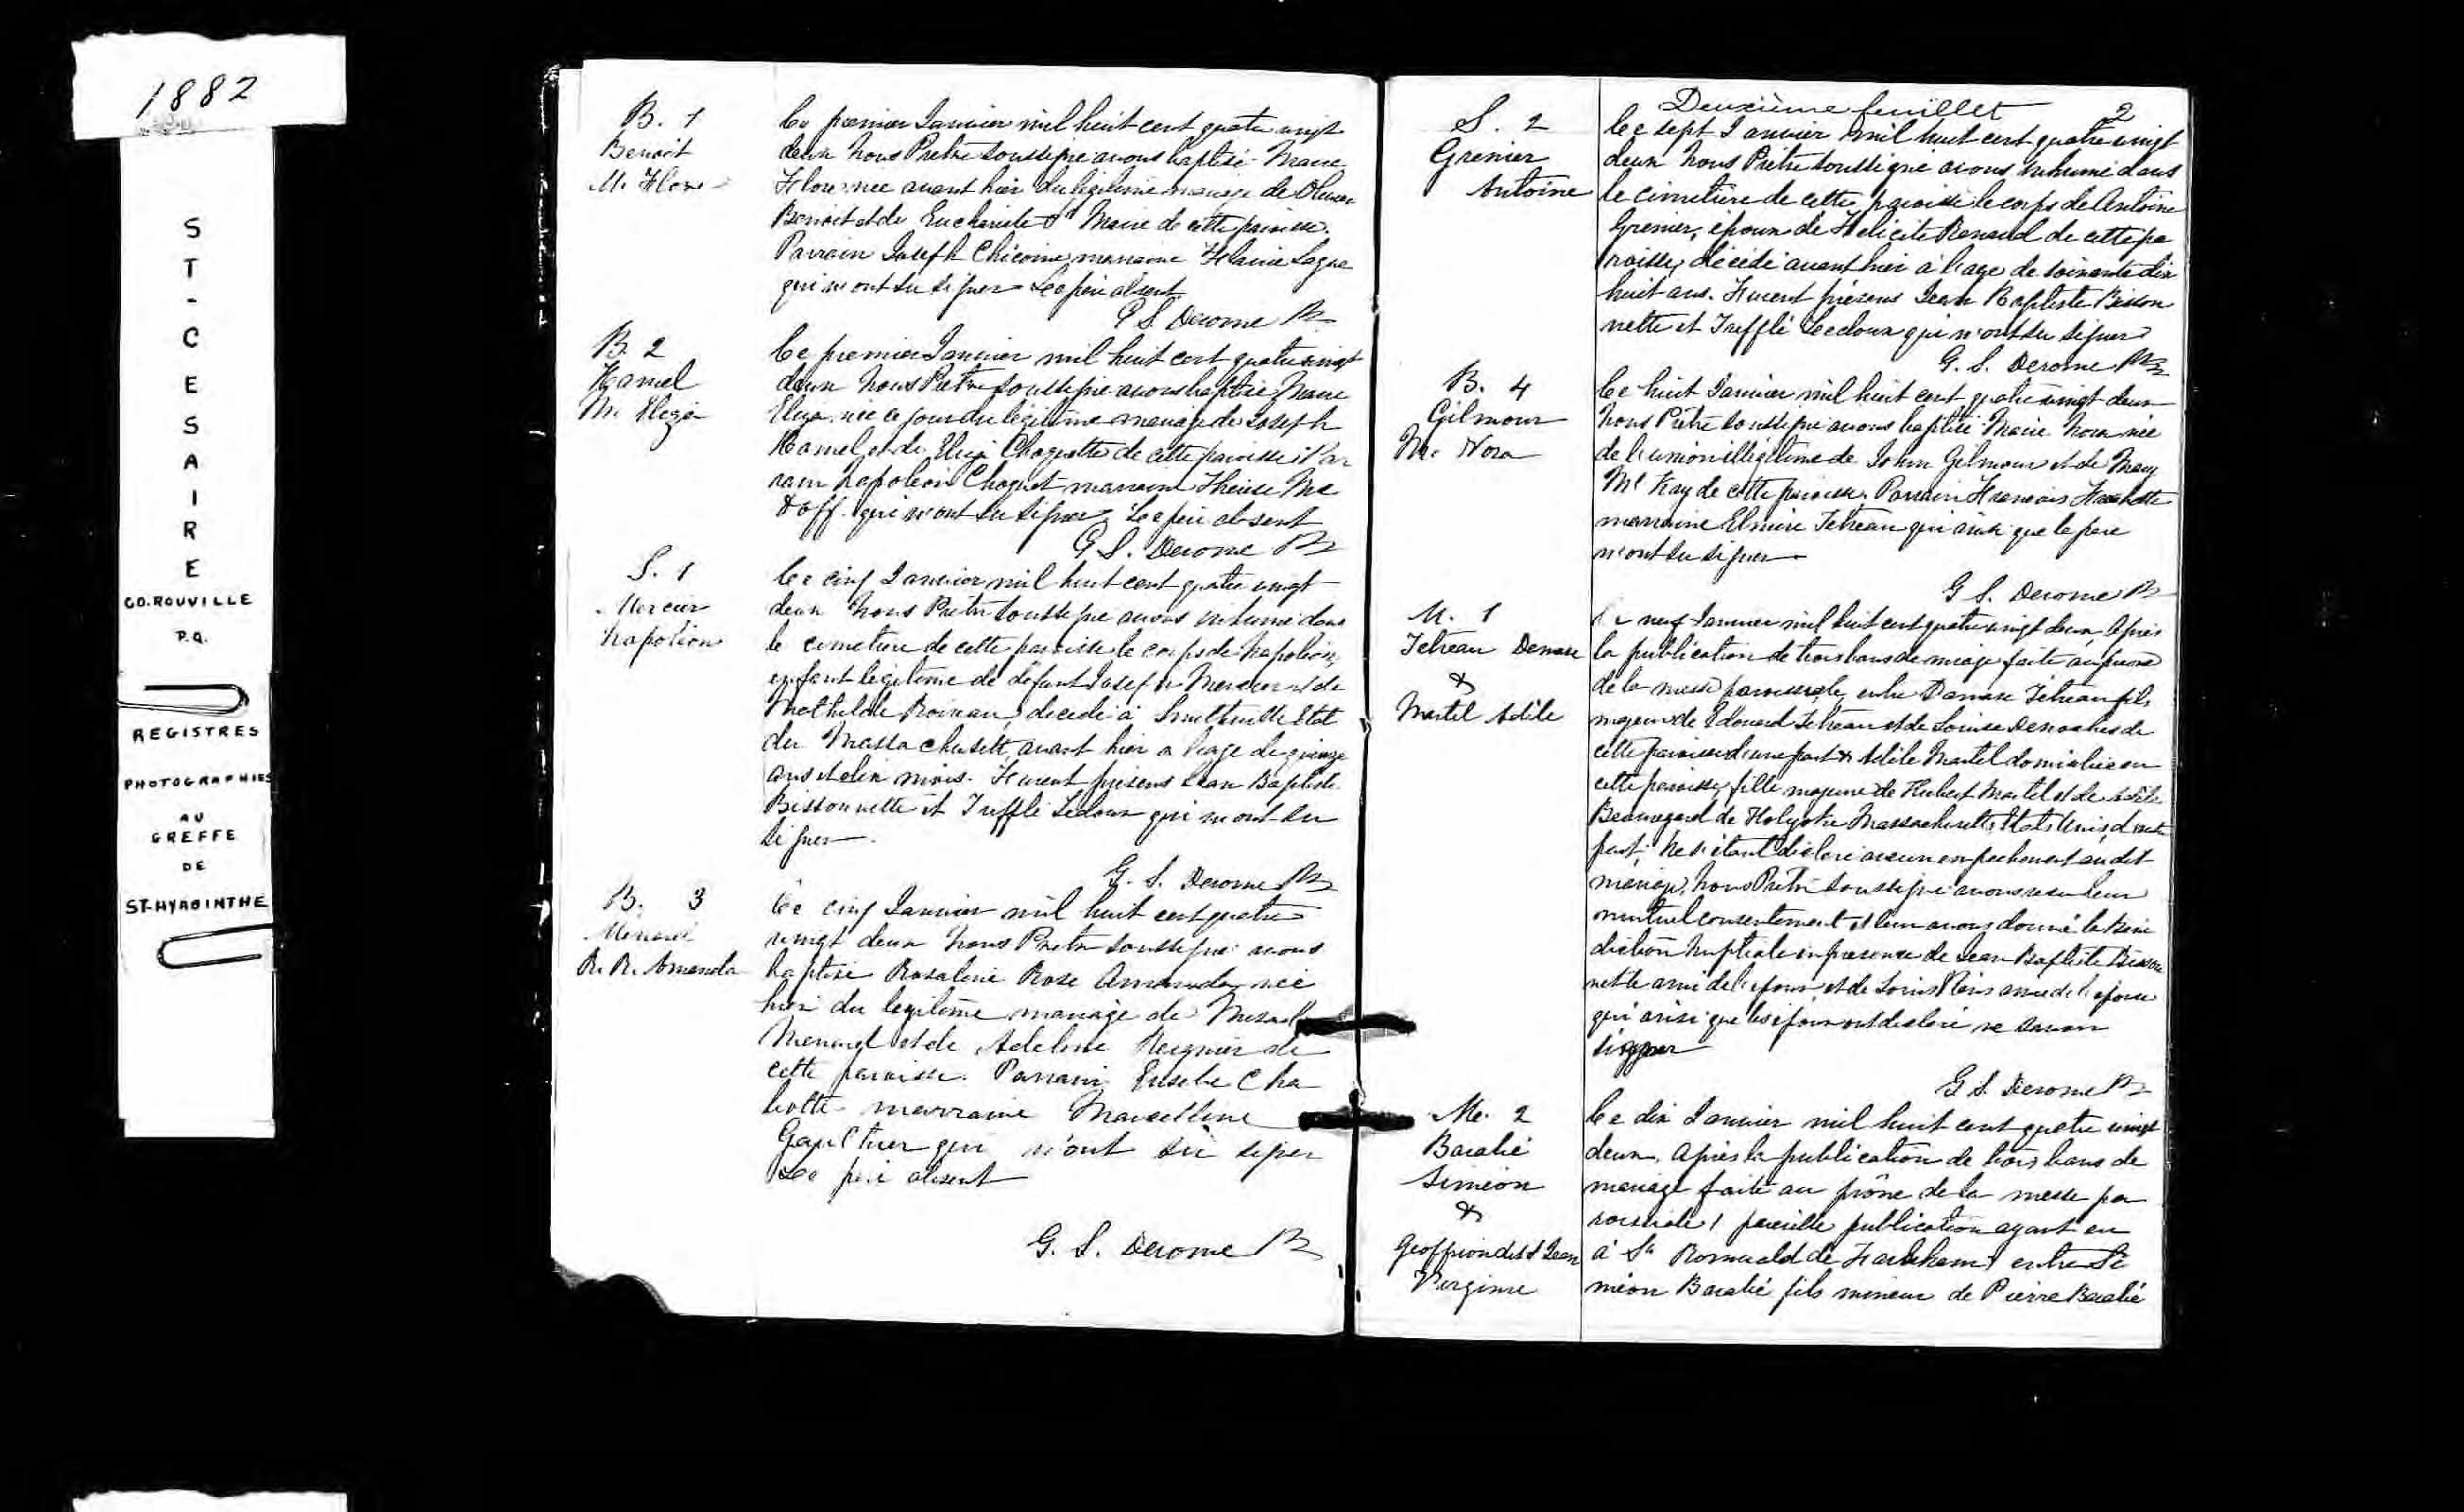 1882
ST-CESAIRE
CO. ROUVILLE
P.Q.
REGISTRES
PHOTOGRAPHIES
AU
GREFFE
DE
ST-HYACINTHE
B. 1
Benoit
M. Flore
Ce premier Janvier mil huit cent quatre vingt
deux Nous Prêtre soussigné avons baptisé Marie
Flore née avant hier du légitime mariage de Olivier
Benoit et de Euchariste St Marie de cette paroisse.
Parrain Joseph Chicoine marraine Flavie Lague
qui n'ont su signer Le père absent
G S. Derome Ptr
B. 2
Hamel
M. Eliza
Ce premier Janvier mil huit cent quatre vingt
deux Nous Prêtre soussigné avons baptisé Marie
Eliza née ce jour du légitime mariage de Joseph
Hamel et de Eliza Choquette de cette paroisse Par
rain Napoléon Choquet marraine Thérèse Mc
Doff qui n'ont su signer Le père absent
G S. Derome Ptr
S. 1
Mercier
Napoléon
Ce cinq Janvier mil huit cent quatre vingt
deux Nous Prêtre soussigné avons inhumé dans
le cimetière de cette paroisse le corps de Napoléon,
enfant légitime de défunt Joseph Mercier et de
Mathilde decedé à Etat
du Massachusett, avant hier a l'age de quinze
ans et dix mois. Furent présens Jean Baptiste
Bissonnette et Trefflé Ledoux qui n'ont su
signer
G. S. Derome Ptr
B. 3
Menard
R. R. Amanda
Ce cinq Janvier mil huit cent quatre
vingt deux Nous Prêtre soussigné avons
baptisé Rosalerie Rose Amanda née
hier du légitime mariage de
Menard et de Adeline Reignier de
cette paroisse. Parrain Eusebe Cha
botte marraine Marcelline
Gaulthier qui n'ont su signer
Le père absent
G. S. Derome Ptr
Deuxième feuillet 2
S. 2
Grenier
Antoine
Ce sept Janvier mil huit cent quatre vingt
deux Nous Prêtre soussigné avons inhumé dans
le cimetière de cette paroisse le corps de Antoine
Grenier, époux de Félicité Renaud de cette pa
roisse, décédé avant hier à l'age de soixante dix
huit ans. Furent présens Jean Baptiste Bisson
nette et Trefflé Ledoux qui n'ont su signer
G. S. Derome Ptr
B. 4
Gilmour
M. Nora
Ce huit Janvier mil huit cent quatre vingt deux
Nous Prêtre soussigné avons baptisé Marie Nora née
de l'union illégitime de John Gilmour et de Mary
Mc Kay de cette paroisse. Parrain François
marraine Elmire Tetreau qui ainsi que le père
n'ont su signer
G S. Derome Ptr
M. 1
Tetreau Damase
&
Martel Adèle
Ce neuf Janvier mil huit cent quatre vingt deux, Après
la publication de trois bans de mariage faite au prone
de la messe paroissiale, entre Damase Tétreau fils
majeur de Edouard Tetreau et de Louise Desnoches de
cette paroisse d'une part & Adèle Martel domiciliée en
cette paroisse, fille majeure de Hubert Martel et de Adèle
Beauregard de Holyoke Massachusetts, Etats Unis, d'autre
part, Ne s'étant déclaré aucun empêchement au dit
mariage, Nous Prêtre soussigné avons reçu leur
mutuel consentement et leur avons donné la Béné
diction Nuptiale en presence de Jean Baptiste Bisson
nette ami de l'époux, et de Louis ami de l'épouse
qui ainsi que les époux ont déclaré ne savoir
signer
G S. Derome Ptr
M. 2
Baralié
Siméon
&
Geoffrion dit St Jean
Virginie
Ce dix Janvier mil huit cent quatre vingt
deux, Après la publication de trois bans de
mariage faite au prône de la messe pa
roissiale, pareille publication ayant eu
à St Romuald de Farnham, entre Si
méon Baralié fils mineur de Pierre Baralié